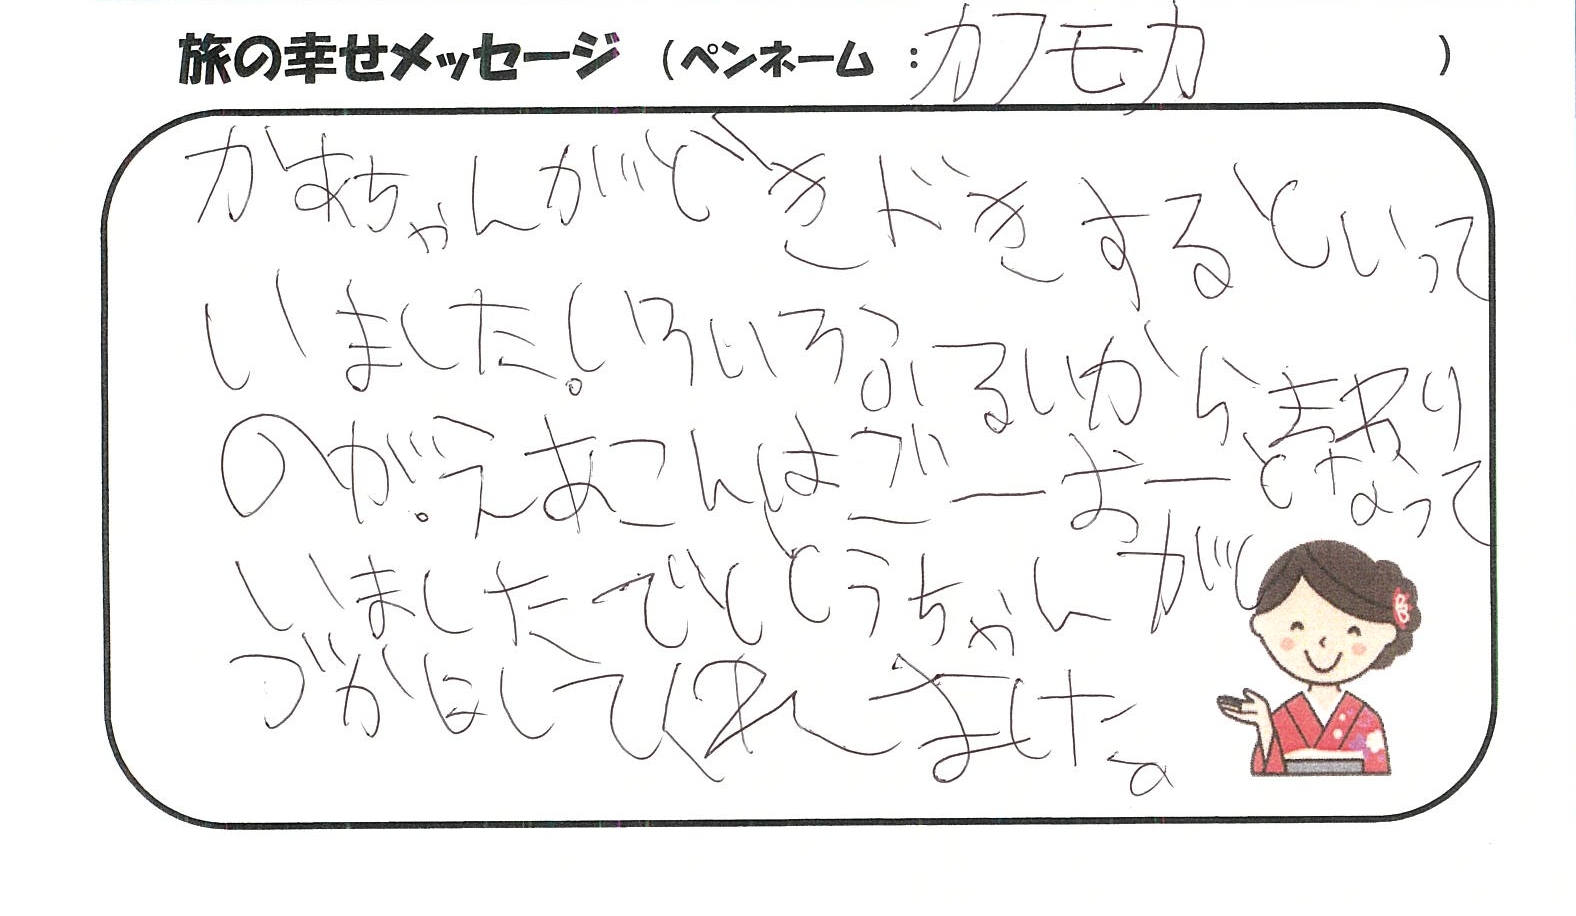 旅の幸せメッセージ (ペンネーム:カフモカ)
かあちゃんがどきドきするといって
いました!いろいろふるいから、おやり
のが。えあこんはごーおーとなって
いましたでもとうちゃんがし
づかにしてくれました。